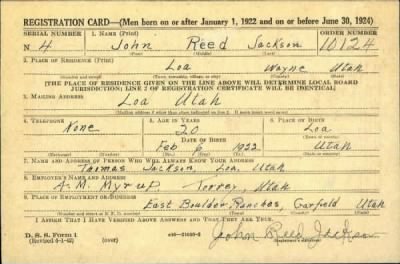 REGISTRATION CARD—(Men born on or after January 1, 1922 and on or before June 30, 1924)
SERIAL NUMBER 1. NAME (Print) ORDER NUMBER
N 4 John Reed Jackson 10124
2. PLACE OF RESIDENCE (Print)
Loa Wayne Utah
(Town, township, village, or city) (County) (State)
[THE PLACE OF RESIDENCE GIVEN ON THE LINE ABOVE WILL DETERMINE LOCAL BOARD
JURISDICTION; LINE 2 OF REGISTRATION CERTIFICATE WILL BE IDENTICAL]
3. MAILING ADDRESS
Loa Utah
4. TELEPHONE 5. AGE IN YEARS 6. PLACE OF BIRTH
None 20 Loa
DATE OF BIRTH (Town or county)
Feb 6 1922 Utah
(Exchange) (Number) (Mo.) (Day) (Yr.) (State or country)
7. NAME AND ADDRESS OF PERSON WHO WILL ALWAYS KNOW YOUR ADDRESS
Thomas Jackson, Loa, Utah
8. EMPLOYER'S NAME AND ADDRESS
A. M. Myrup, Torrey, Utah
9. PLACE OF EMPLOYMENT OR BUSINESS
East Boulder, Ranches, Garfield Utah
(Number and street or R. F. D. number) (Town) (County) (State)
I AFFIRM THAT I HAVE VERIFIED ABOVE ANSWERS AND THAT THEY ARE TRUE.
D. S. S. Form 1
(Revised 6-1-42) (over) John Reed Jackson
(Registrant's signature)